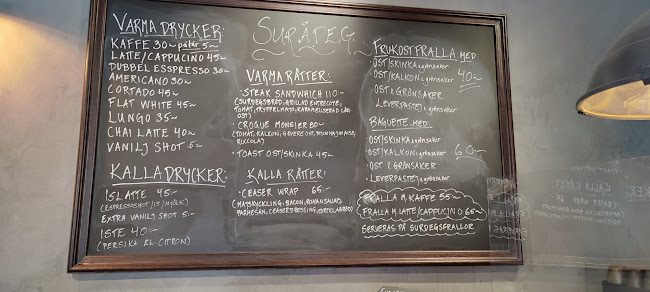 VARMA DRYCKER:
KAFFE 30~ påtår 5~
LATTE/CAPPUCINO 45~
DUBBEL ESSPRESSO 30~
AMERICANO 30~
CORTADO 45~
FLAT WHITE 45~
LUNGO 35~
CHAI LATTE 40~
VANILJ SHOT 5~
KALLA DRYCKER:
ISLATTE 45~
(ESPRESSOSHOT/IS/MJÖLK)
EXTRA VANILJ SHOT 5~
ISTE 40:~
(PERSIKA EL. CITRON)
SURDEG
VARMA RÄTTER:
STEAK SANDWHICH 110:-
(SURDEGSBRÖD, GRILLAD ENTRECOTE,
TOMAT, TRYFFELMAJO, KARAMELISERAD LÖK
OST)
CROQUE MONSIER 80~
(TOMAT, KALKON, GRYERE OST, DIJON MAJONNÄSE,
RUCCOLA)
TOAST OST/SKINKA 45~
KALLA RÄTTER:
CEASER WRAP 65:-
(MAJSKYCKLING, BACON, ROMANSALLAD,
PARMESAN, CEASERDRESSING, VETETORTILLABRÖD)
FRUKOSTFRALLA MED:
OST/SKINKA & grönsaker
OST/KALKON & grönsaker
40~
OST & GRÖNSAKER
LEVERPASTEJ & grönsaker
BAGUETTE MED:
OST/SKINKA & grönsaker
OST/KALKON & grönsaker
60~
OST & GRÖNSAKER
LEVERPASTEJ & grönsaker
FRALLA M. KAFFE 55~
FRALLA M. LATTE/CAPPUCINO 65~
SERVERAS PÅ SURDEGSFRALLOR